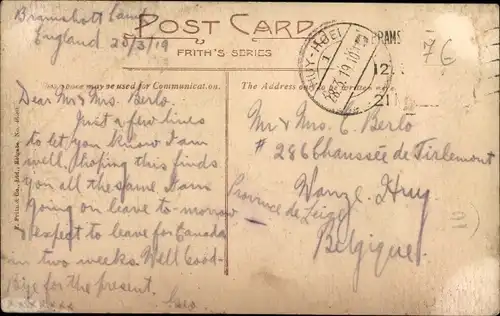 Bramshott Camp
England 20/3/19
POST CARD
FRITH'S SERIES
HUY-HOEI
1
BRAMS
76
12
21 M
space may be used for Communication.
The Address to be written here.
Dear Mr & Mrs. Berlo.
Just a few lines
to let you know I am
well, hoping this finds
you all the same. I am
going on leave to-morrow
& expect to leave for Canada
in two weeks. Well Good-
bye for the present.
xxxxxxxx Geo.
Mr & Mrs. C. Berlo
# 286 Chaussée de Tirlemont
Wanze-Huy
Province de Leige
Belgique
F. Frith & Co., Ltd., Reigate.